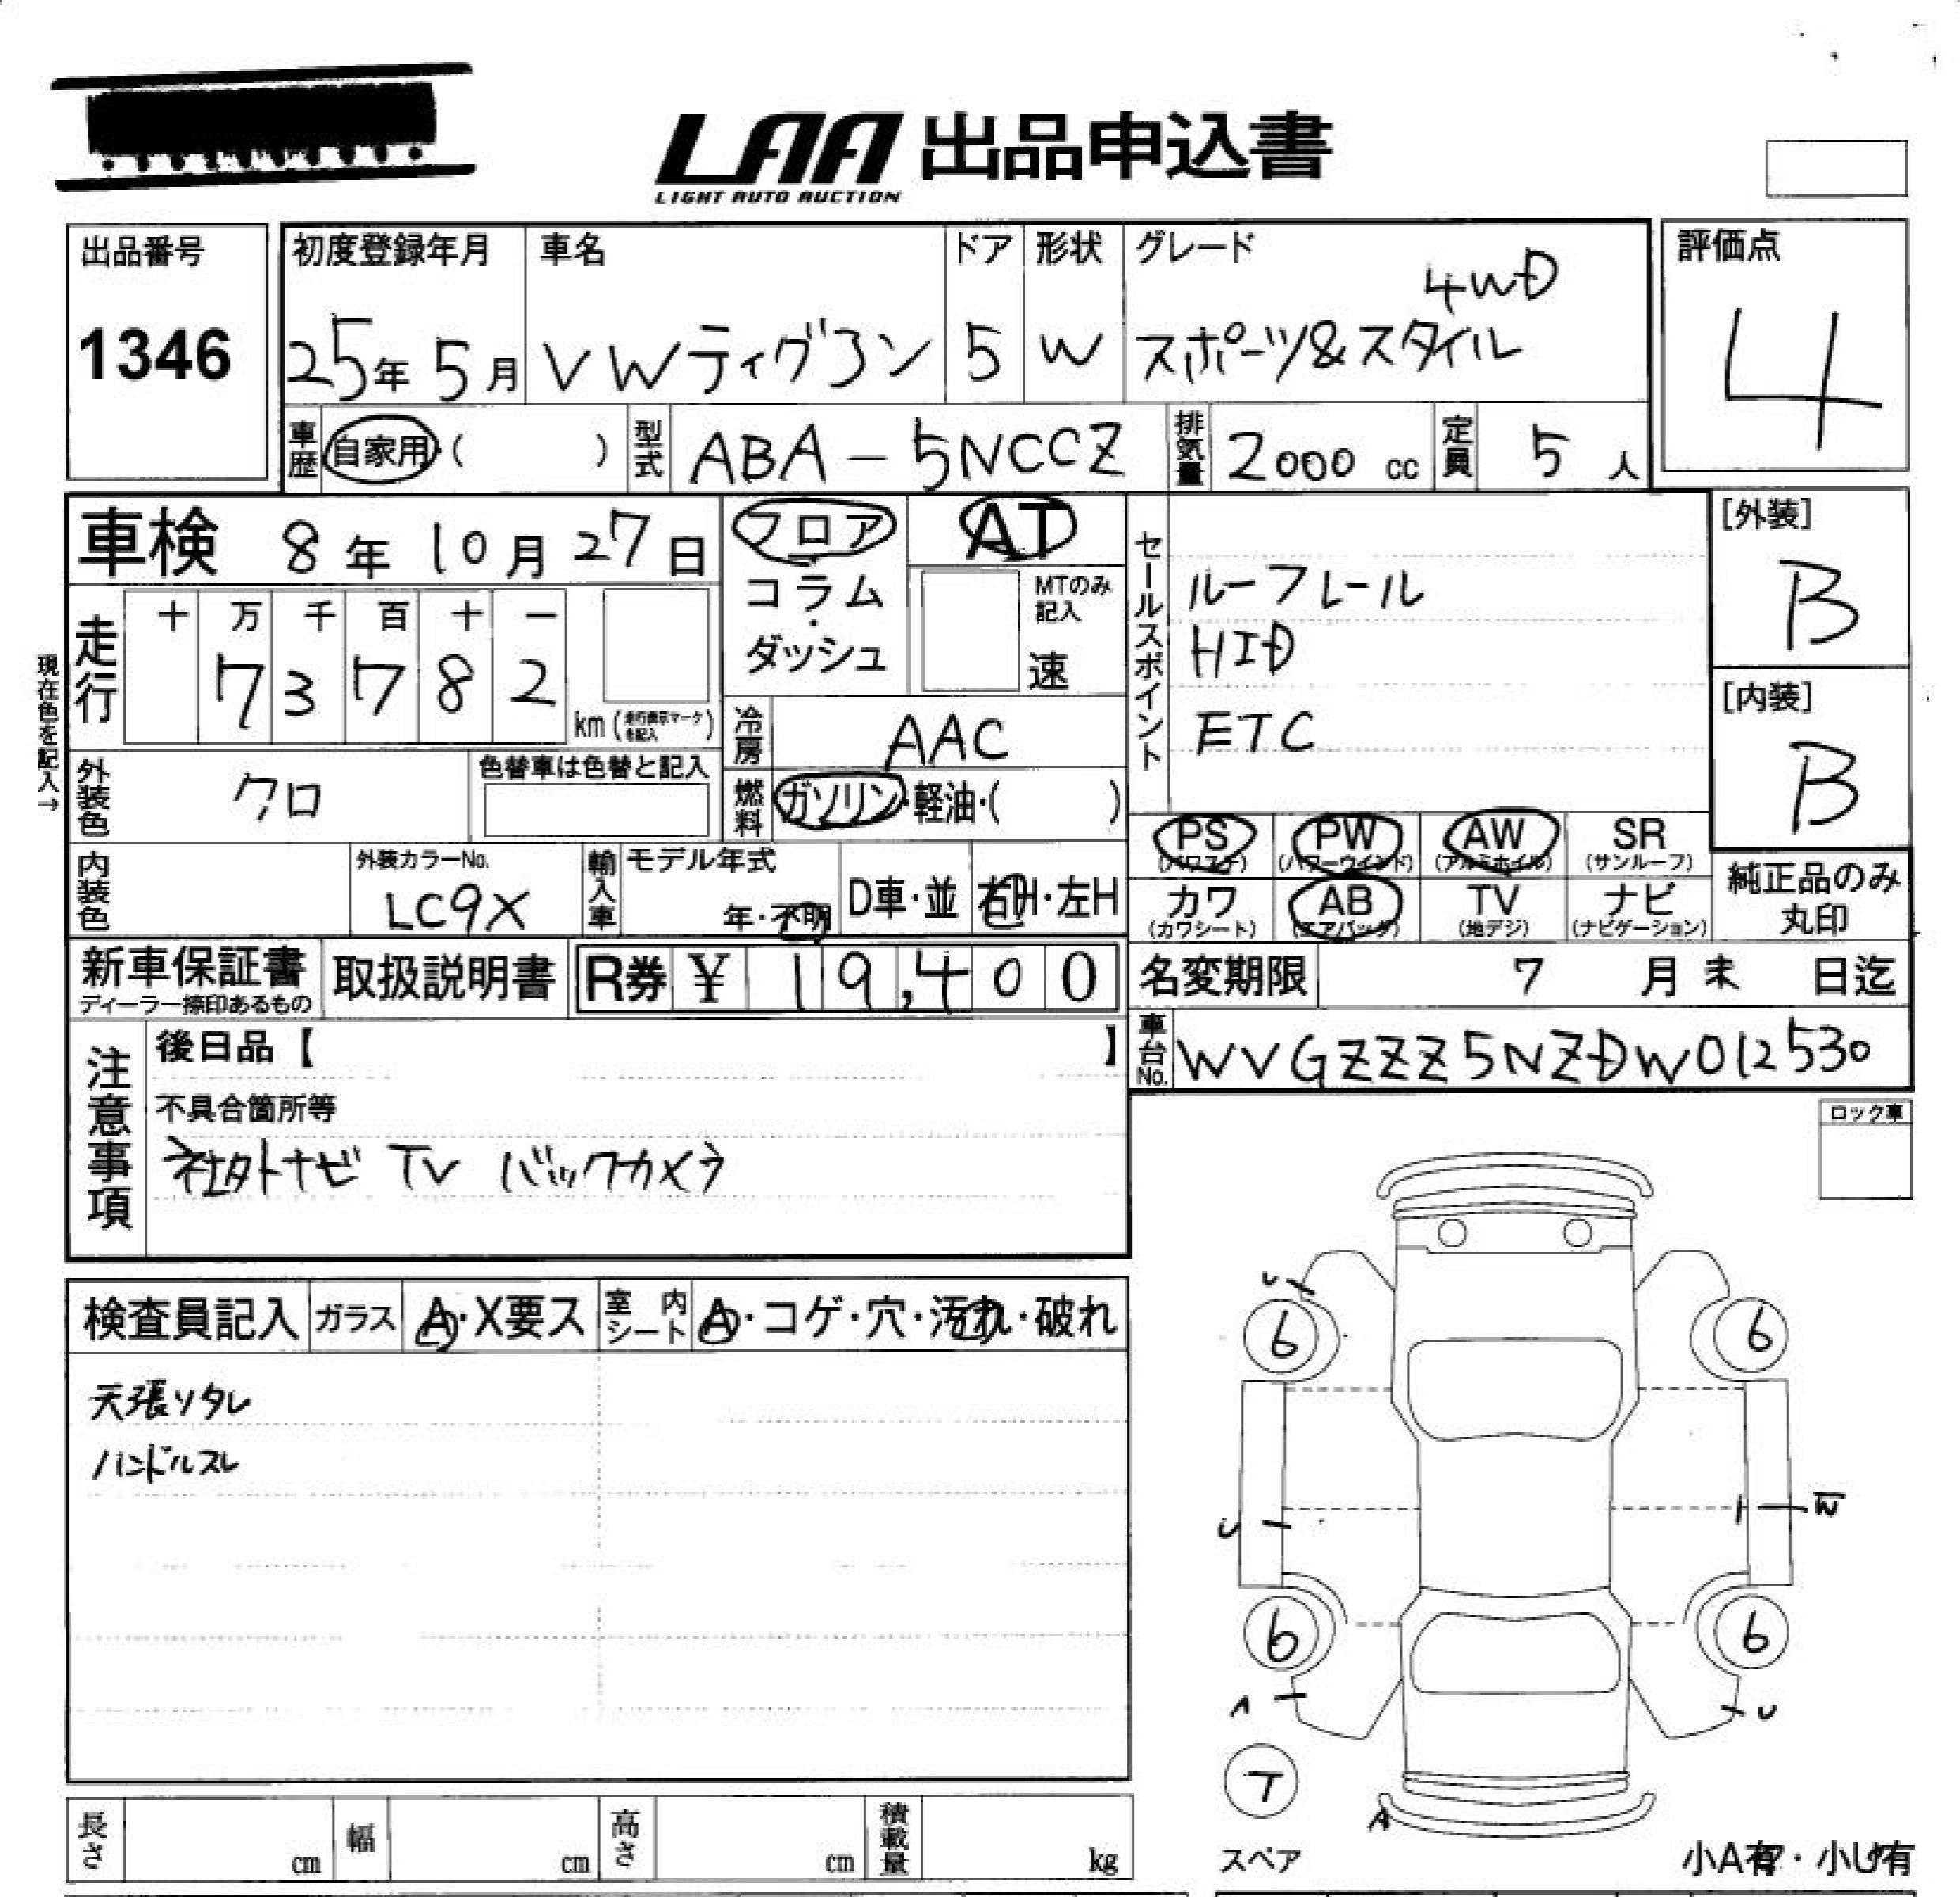 LAA 出品申込書
LIGHT AUTO AUCTION
出品番号
1346
初度登録年月
25年 5月
車名
VWティグアン
ドア
5
形状
W
グレード
4WD
スポーツ&スタイル
評価点
4
車歴 自家用・( )
型式 ABA-5NCCZ
排気量 2000 cc
定員 5 人
車検 8年 10月 27日
フロア・コラム・ダッシュ
AT
MTのみ記入
速
セールスポイント
ルーフレール
HID
ETC
[外装]
B
[内装]
B
走行
十 万 千 百 十 一
7 3 7 8 2
km (走行表示マークを記入)
現在色を記入→
冷房 AAC
外装色 クロ
色替車は色替と記入
燃料 ガソリン・軽油・( )
PS (パワステ)
PW (パワーウインド)
AW (アルミホイル)
SR (サンルーフ)
内装色
外装カラーNo.
LC9X
輸入車
モデル年式
年・不明
D車・並
右H・左H
カワ (カワシート)
AB (エアバック)
TV (地デジ)
ナビ (ナビゲーション)
純正品のみ丸印
新車保証書
ディーラー捺印あるもの
取扱説明書
R券 ¥ 19,400
名変期限 7 月 末 日迄
車台No. WVGZZZ5NZDW012530
注意事項
後日品【 】
不具合箇所等
社外ナビ TV バックカメラ
ロック車
検査員記入
ガラス A・X要ス
室内シート A・コゲ・穴・汚れ・破れ
天張りタレ
ハンドルスレ
U
6
6
U
W
6
6
A
U
T
A
スペア
小A有・小U有
長さ cm
幅 cm
高さ cm
積載量 kg